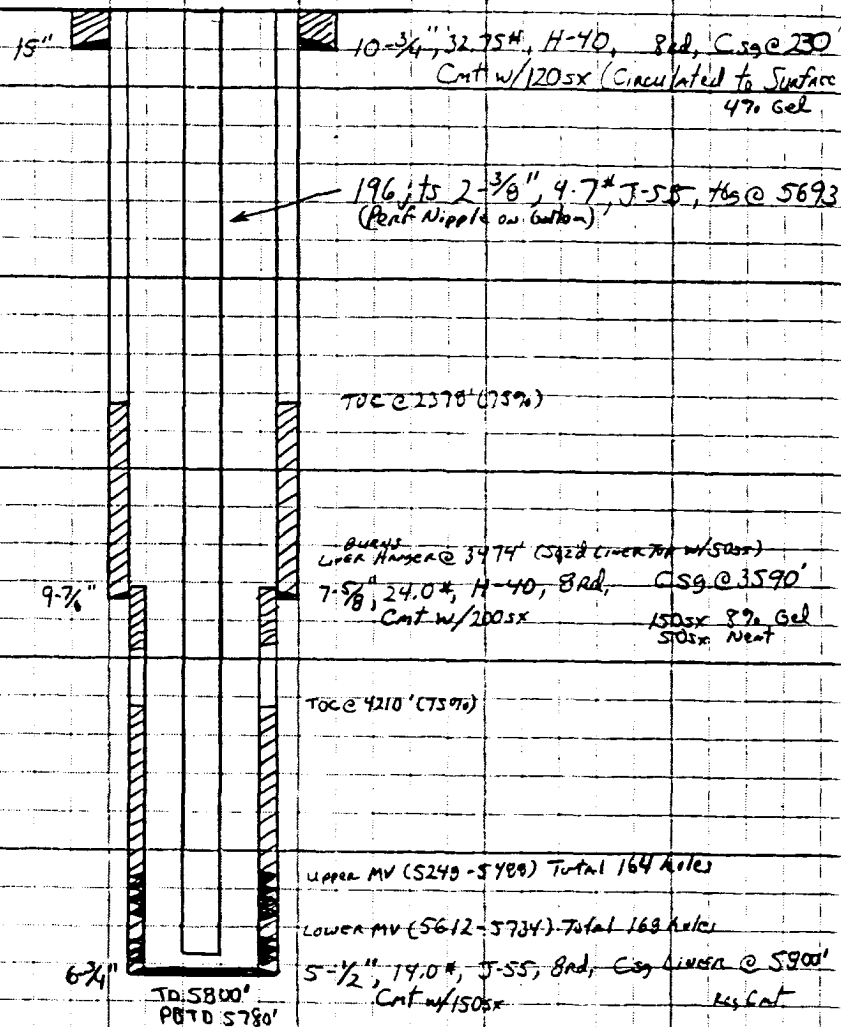 15" 10-3/4", 32.75#, H-40, 8rd, Csg @ 230'
Cmt w/120sx (Circulated to Surface
4% Gel
196 jts 2-3/8", 4.7#, J-55, tbg @ 5693
(Perf Nipple on bottom)
TOC @ 2378' (75%)
BURNS
Liner Hanger @ 3474' (Sqz'd Liner Top w/50sx)
9-7/8" 7-5/8", 24.0#, H-40, 8Rd, Csg @ 3590'
Cmt w/200sx 150sx 8% Gel
50sx Neat
TOC @ 4210' (75%)
Upper MV (5248-5488) Total 164 holes
Lower MV (5612-5734) Total 168 holes
6-3/4" 5-1/2", 14.0#, J-55, 8rd, Csg Liner @ 5800'
Cmt w/150sx Reg Cmt
TD 5800'
PBTD 5780'